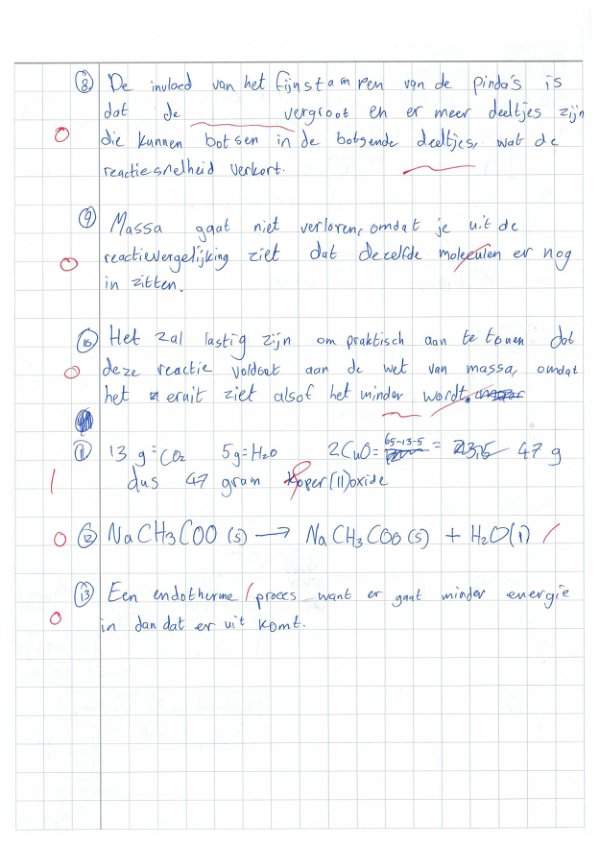 8 De invloed van het fijnstampen van de pinda's is
dat de vergroot en er meer deeltjes zijn
0 die kunnen botsen in de botsende deeltjes, wat de
reactiesnelheid verkort.
9 Massa gaat niet verloren, omdat je uit de
0 reactievergelijking ziet dat dezelfde moleculen er nog
in zitten.
10 Het zal lastig zijn om praktisch aan te tonen dat
0 deze reactie voldoet aan de wet van massa, omdat
het eruit ziet alsof het minder wordt.
11 13 g = CO2 5g = H2O 2CuO = 65-13-5 = 47 g
1 dus 47 gram koper(II)oxide
0 12 NaCH3COO (s) → NaCH3COO (s) + H2O(l)
13 Een endotherme proces want er gaat minder energie
0 in dan dat er uit komt.